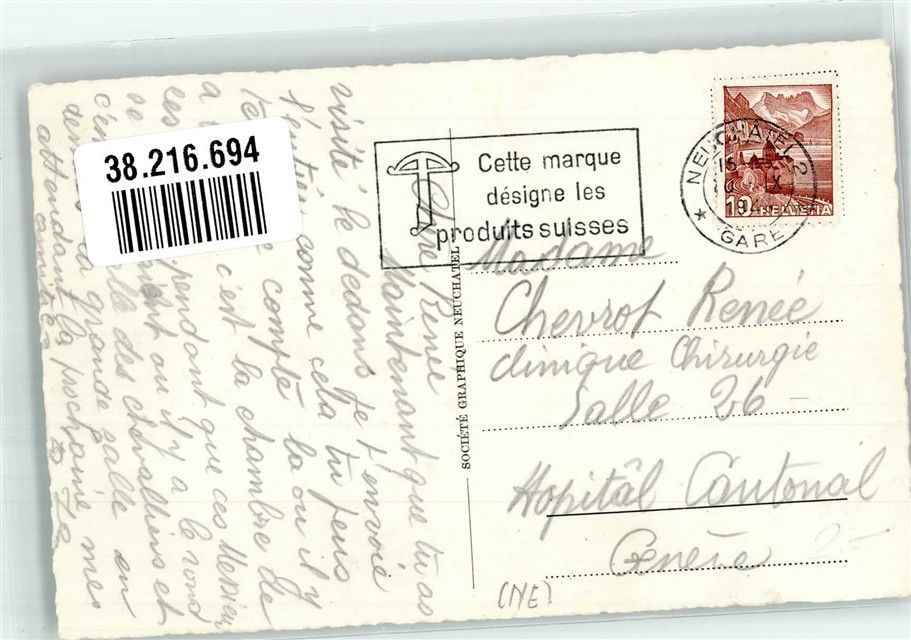 38.216.694
Cette marque
désigne les
produits suisses
NEUCHÂTEL 2
GARE
10
HELVETIA
Chère Renée
Maintenant que tu as
visité le dedans je t'envoie
l'entrée comme cela tu peus
compte la ou il y
a c'est la chambre de
les pendant que ces Messieurs
se ou il y a le rond
c'est des chevalliers et
der la grande salle en
attendant la prochaine mes
amitiés
SOCIÉTÉ GRAPHIQUE NEUCHATEL
Madame
Chevrot Renée
Clinique Chirurgie
Salle 26
Hopitâl Cantonal
Genève
(NE)
2=